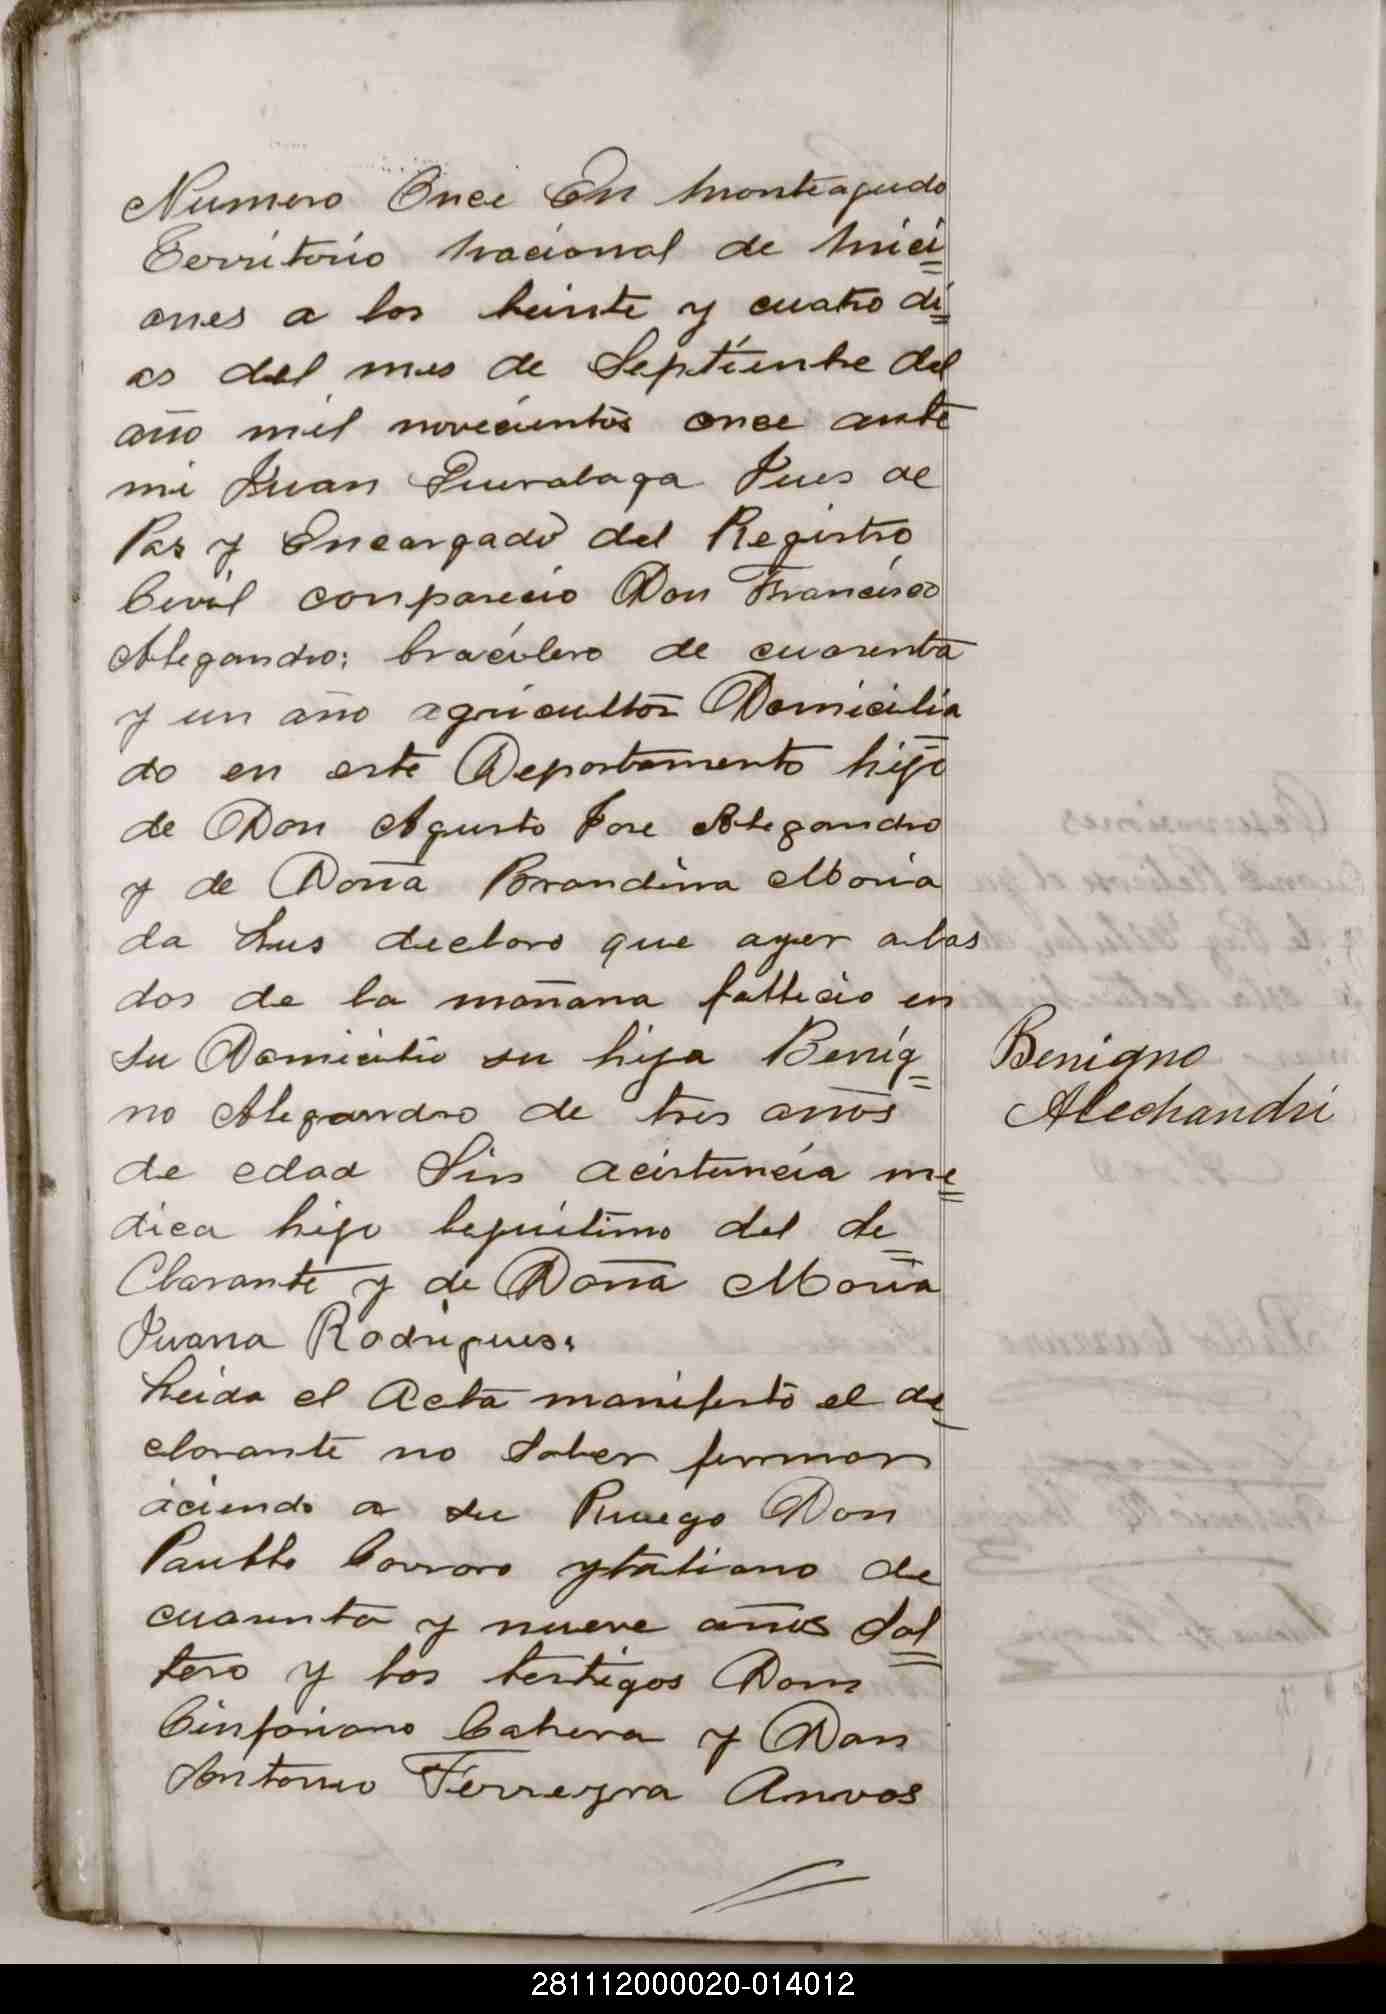 Numero Once En Monteagudo
Territorio Nacional de Mici=
ones a los beinte y cuatro di=
as del mes de Septienbre del
año mil novecientos once ante
mi Juan Jues de
Pas y Encargado del Registro
Cevil conparecio Don Francisco
Alegandro: bracilero de cuarenta
y un año agricultor Domicilia
do en este Departamento hijo
de Don Agusto Jose Alegandro
y de Doña Brandina Maria
da Lus declaro que ayer a las
dos de la mañana fallecio en
su Domicilio su hija Benig=
no Alegandro de tres años
de edad Sin acistencia me=
dica hijo leguitimo del de=
Clarante y de Doña Maria
Juana Rodrigues.
Leida el Acta manifesto el de
clarante no saber firmar
aciendo a su Ruego Don
Paublo Corraro ytaliano de
cuarenta y nueve años Sol=
tero y los testigos Dom
Cinforiano Cabera y Don
Antonio Ferreyra Anvos
Benigno
Alechandri
281112000020-014012